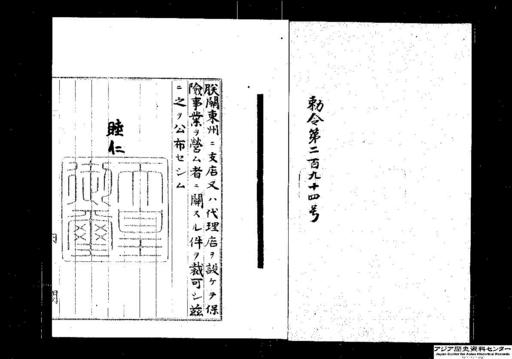 勅令第二百九十四号
朕關東州ニ支店又ハ代理店ヲ設ケテ保
險事業ヲ營ム者ニ關スル件ヲ裁可シ茲
ニ之ヲ公布セシム
睦仁
天皇
御璽
アジア歴史資料センター
Japan Center for Asian Historical Records